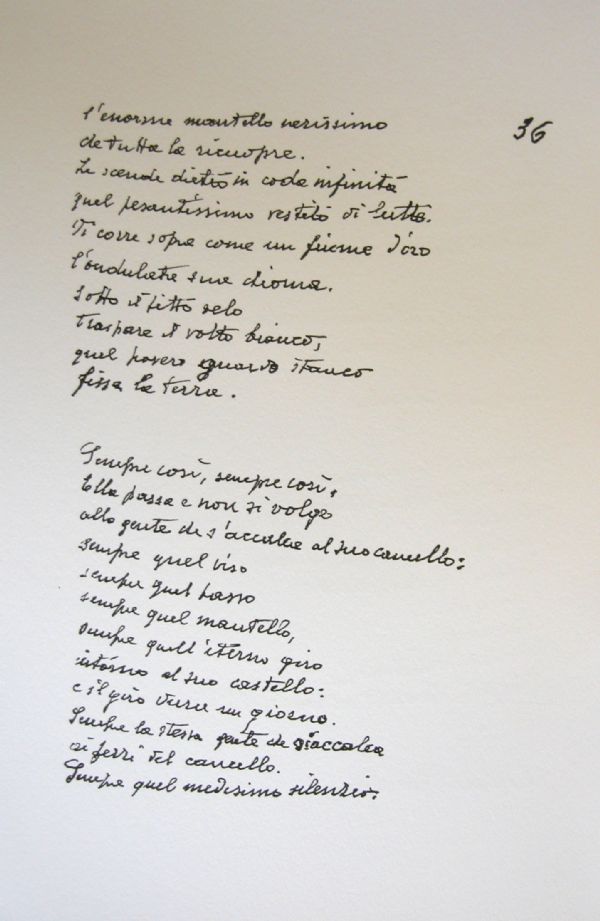 l'enorme mantello nerissimo
36
che tutta la ricuopre.
Le scende dietro in coda infinità
quel pesantissimo vestito di lutto.
Vi corre sopra come un fiume d'oro
l'ondulata sua chioma.
Sotto il fitto velo
traspare il volto bianco,
quel povero guardo stanco
fissa la terra.
Sempre così, sempre così,
Ella passa e non si volge
alla gente che s'accalca al suo cancello:
sempre quel viso
sempre quel passo
sempre quel mantello,
sempre quell'eterno giro
intorno al suo castello:
e il giro dura un giorno.
Sempre la stessa gente che s'accalca
ai ferri del cancello.
Sempre quel medesimo silenzio: